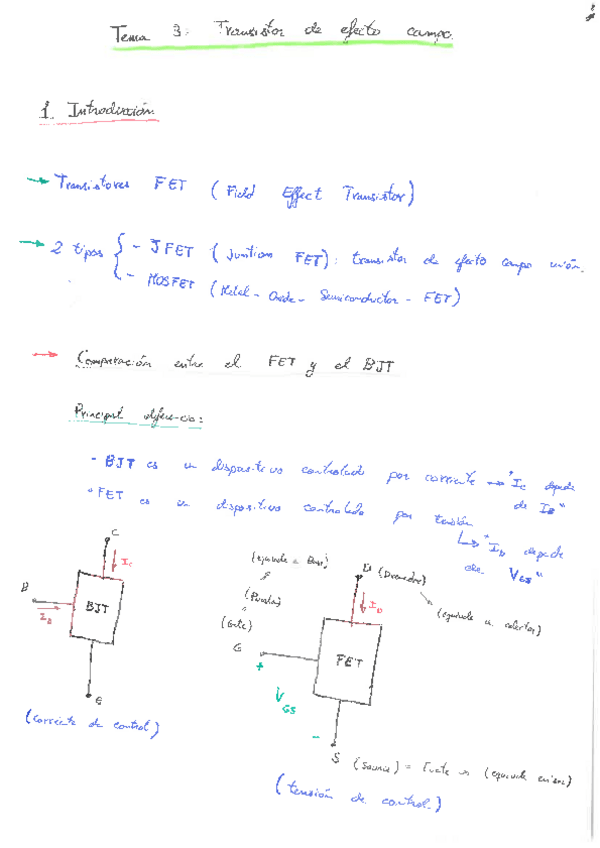 Tema 3: Transistor de efecto campo.
1. Introducción
→ Transistores FET (Field Effect Transistor)
→ 2 tipos { - JFET (Juntion FET): transistor de efecto campo unión.
- MOSFET (Metal - Oxide - Semiconductor - FET)
→ Comparación entre el FET y el BJT
Principal diferencia:
- BJT es un dispositivo controlado por corriente → "IC depende de IB"
• FET es un dispositivo controlado por tensión
↳ "ID depende de VGS"
C
IC
B
IB
BJT
E
(corriente de control)
(equivale a Base)
(Puerta)
(Gate)
G
+
VGS
-
D (Drenador)
(equivale a colector)
ID
FET
S (Source) = Fuente (equivale emisor)
(tensión de control.)